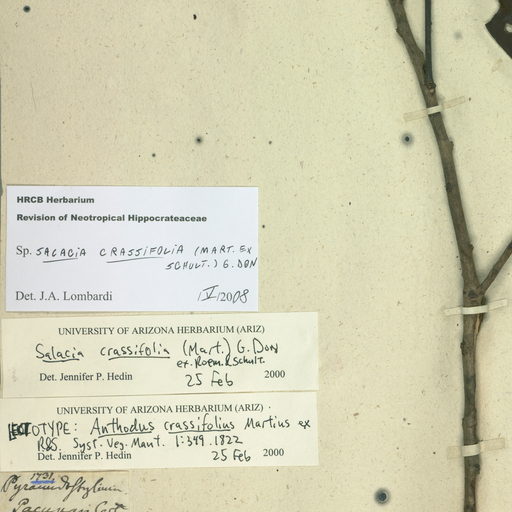 HRCB Herbarium
Revision of Neotropical Hippocrateaceae
Sp. SALACIA CRASSIFOLIA (MART. EX
SCHULT.) G. DON
Det. J.A. Lombardi IV/2008
UNIVERSITY OF ARIZONA HERBARIUM (ARIZ)
Salacia crassifolia (Mart.) G. Don
ex. Roem. & Schult.
Det. Jennifer P. Hedin 25 Feb 2000
UNIVERSITY OF ARIZONA HERBARIUM (ARIZ)
LECTOTYPE: Anthodus crassifolius Martius ex
R&S. Syst. Veg. Mant. 1:349. 1822
Det. Jennifer P. Hedin 25 Feb 2000
1731